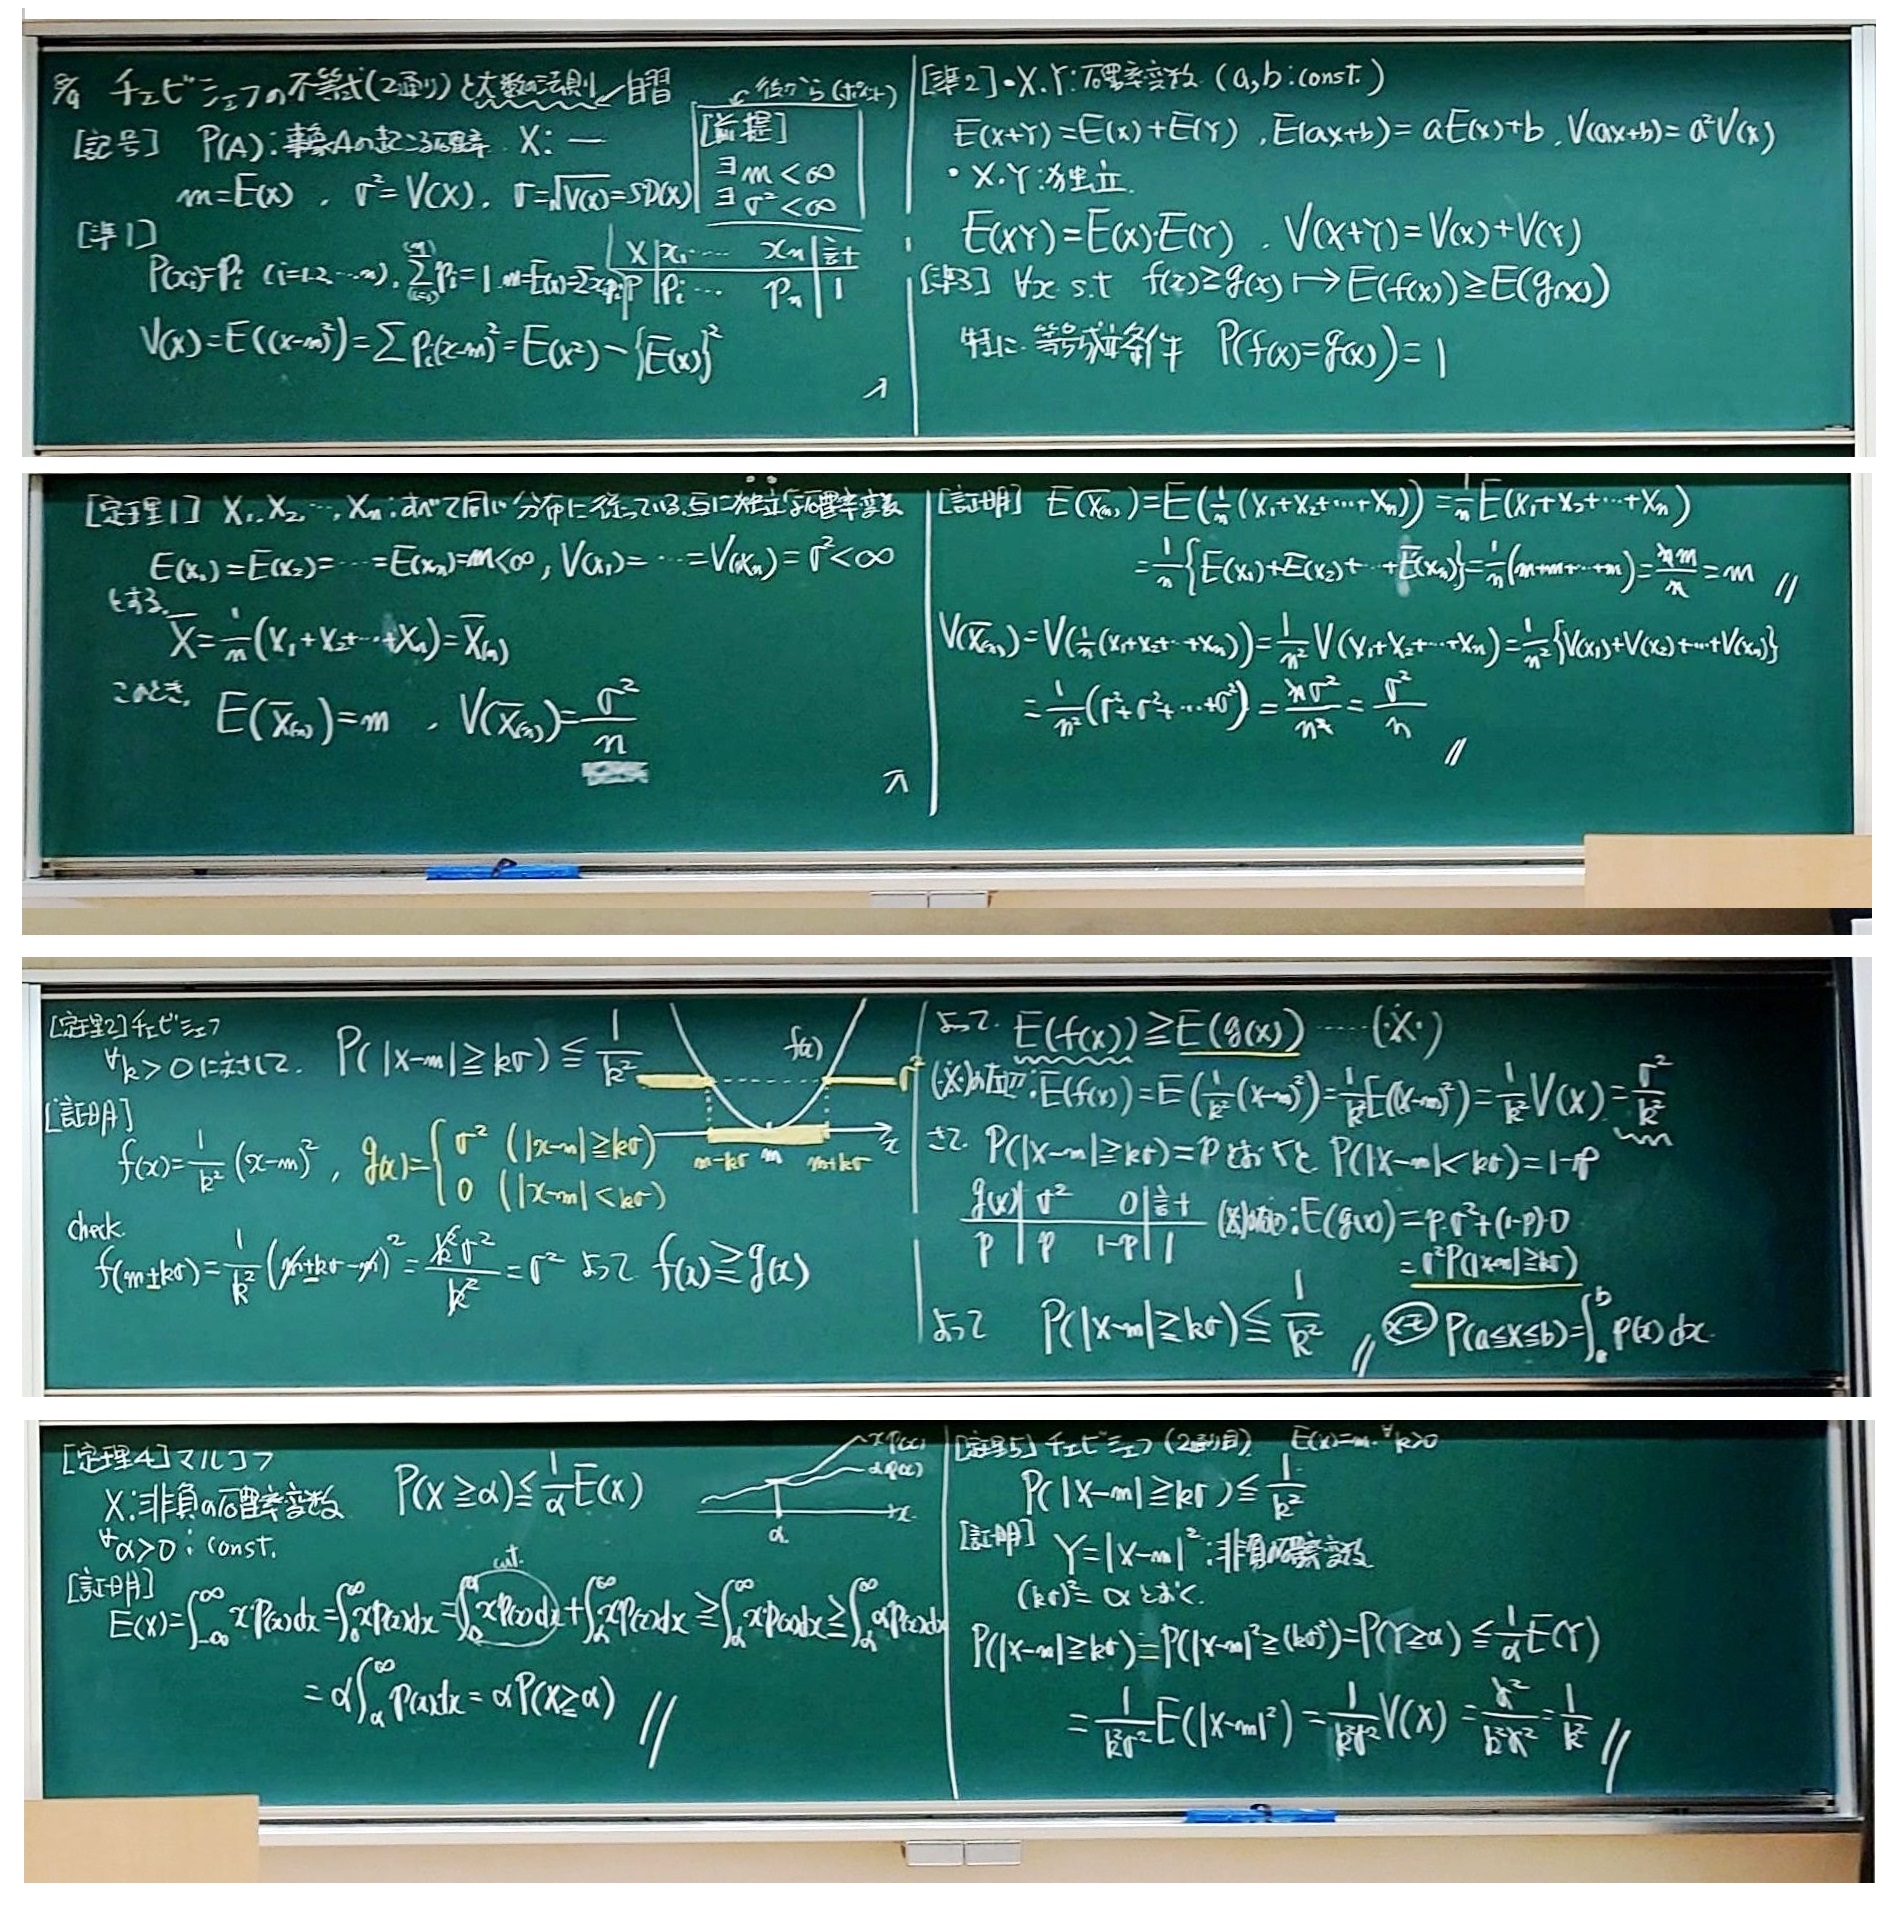 チェビシェフの不等式(2通り)と大数の法則 自習
[記号] P(A):事象Aの起こる確率 X: ―
m=E(X), σ²=V(X), σ=√V(X)=SD(X)
後から(ポスト)
[前提]
∃m<∞
∃σ²<∞
[準1]
P(xᵢ)=Pᵢ (i=1,2,…,n), Σpᵢ=1 m=E(X)=Σxᵢpᵢ
X | x₁ … xₙ | 計
P | Pᵢ … pₙ | 1
V(X)=E((X-m)²)=Σpᵢ(x-m)²=E(X²)-{E(X)}²
[準2]・X,Y:確率変数 (a,b:const.)
E(X+Y)=E(X)+E(Y), E(aX+b)=aE(X)+b, V(aX+b)=a²V(X)
・X,Y:独立
E(XY)=E(X)・E(Y), V(X+Y)=V(X)+V(Y)
[準3] ∀x s.t f(x)≥g(x) ↦ E(f(x))≥E(g(x))
特に、等号成立条件 P(f(x)=g(x))=1
[定理1] X₁,X₂,…,Xₙ:すべて同じ分布に従っている互に独立な確率変数
E(X₁)=E(X₂)=…=E(Xₙ)=m<∞, V(X₁)=…=V(Xₙ)=σ²<∞
とする。
X̄=1/n(X₁+X₂+…+Xₙ)=X̄(n)
このとき,
E(X̄(n))=m , V(X̄(n))=σ²/n
[証明] E(X̄(n))=E(1/n(X₁+X₂+…+Xₙ))=1/n E(X₁+X₂+…+Xₙ)
=1/n{E(X₁)+E(X₂)+…+E(Xₙ)}=1/n(m+m+…+m)=nm/n=m //
V(X̄(n))=V(1/n(X₁+X₂+…+Xₙ))=1/n² V(X₁+X₂+…+Xₙ)=1/n²{V(X₁)+V(X₂)+…+V(Xₙ)}
=1/n²(σ²+σ²+…+σ²)=nσ²/n²=σ²/n
//
[定理2]チェビシェフ
∀k>0に対して, P(|X-m|≧kσ)≦1/k²
[証明]
f(x)=1/k²(x-m)², g(x)={σ² (|x-m|≧kσ)
0 (|x-m|<kσ)
f(x)
σ²
m-kσ m m+kσ x
check
f(m±kσ)=1/k²(m±kσ-m)²=k²σ²/k²=σ² よって f(x)≧g(x)
よって, E(f(X))≧E(g(X)) …… (※)
(※)の左辺:E(f(X))=E(1/k²(X-m)²)=1/k²E((X-m)²)=1/k²V(X)=σ²/k²
さて P(|X-m|≧kσ)=pとおくと P(|X-m|<kσ)=1-p
g(x) | σ² 0 | 計
P | p 1-p | 1
(※)の右辺:E(g(X))=p・σ²+(1-p)・0
=σ²P(|X-m|≧kσ)
よって P(|X-m|≧kσ)≦1/k² //
メモ P(a≤X≤b)=∫ₐᵇ p(x)dx
[定理4]マルコフ
X:非負の確率変数 P(X≧α)≦1/α E(X)
∀α>0:const.
xp(x)
αp(x)
α x
[証明]
cut.
E(X)=∫₋∞^∞ x・p(x)dx=∫₀^∞ xp(x)dx=∫₀^α xp(x)dx+∫α^∞ xp(x)dx≧∫α^∞ x・p(x)dx≧∫α^∞ αp(x)dx
=α∫α^∞ p(x)dx=αP(X≧α) //
[定理5]チェビシェフ(2通り目) E(X)=m, ∀k>0
P(|X-m|≧kσ)≦1/k²
[証明] Y=|X-m|²:非負の確率変数
(kσ)²=αとおく.
P(|X-m|≧kσ)=P(|X-m|²≧(kσ)²)=P(Y≧α)≦1/α E(Y)
=1/k²σ² E(|X-m|²)=1/k²σ² V(X)=σ²/k²σ²=1/k² //